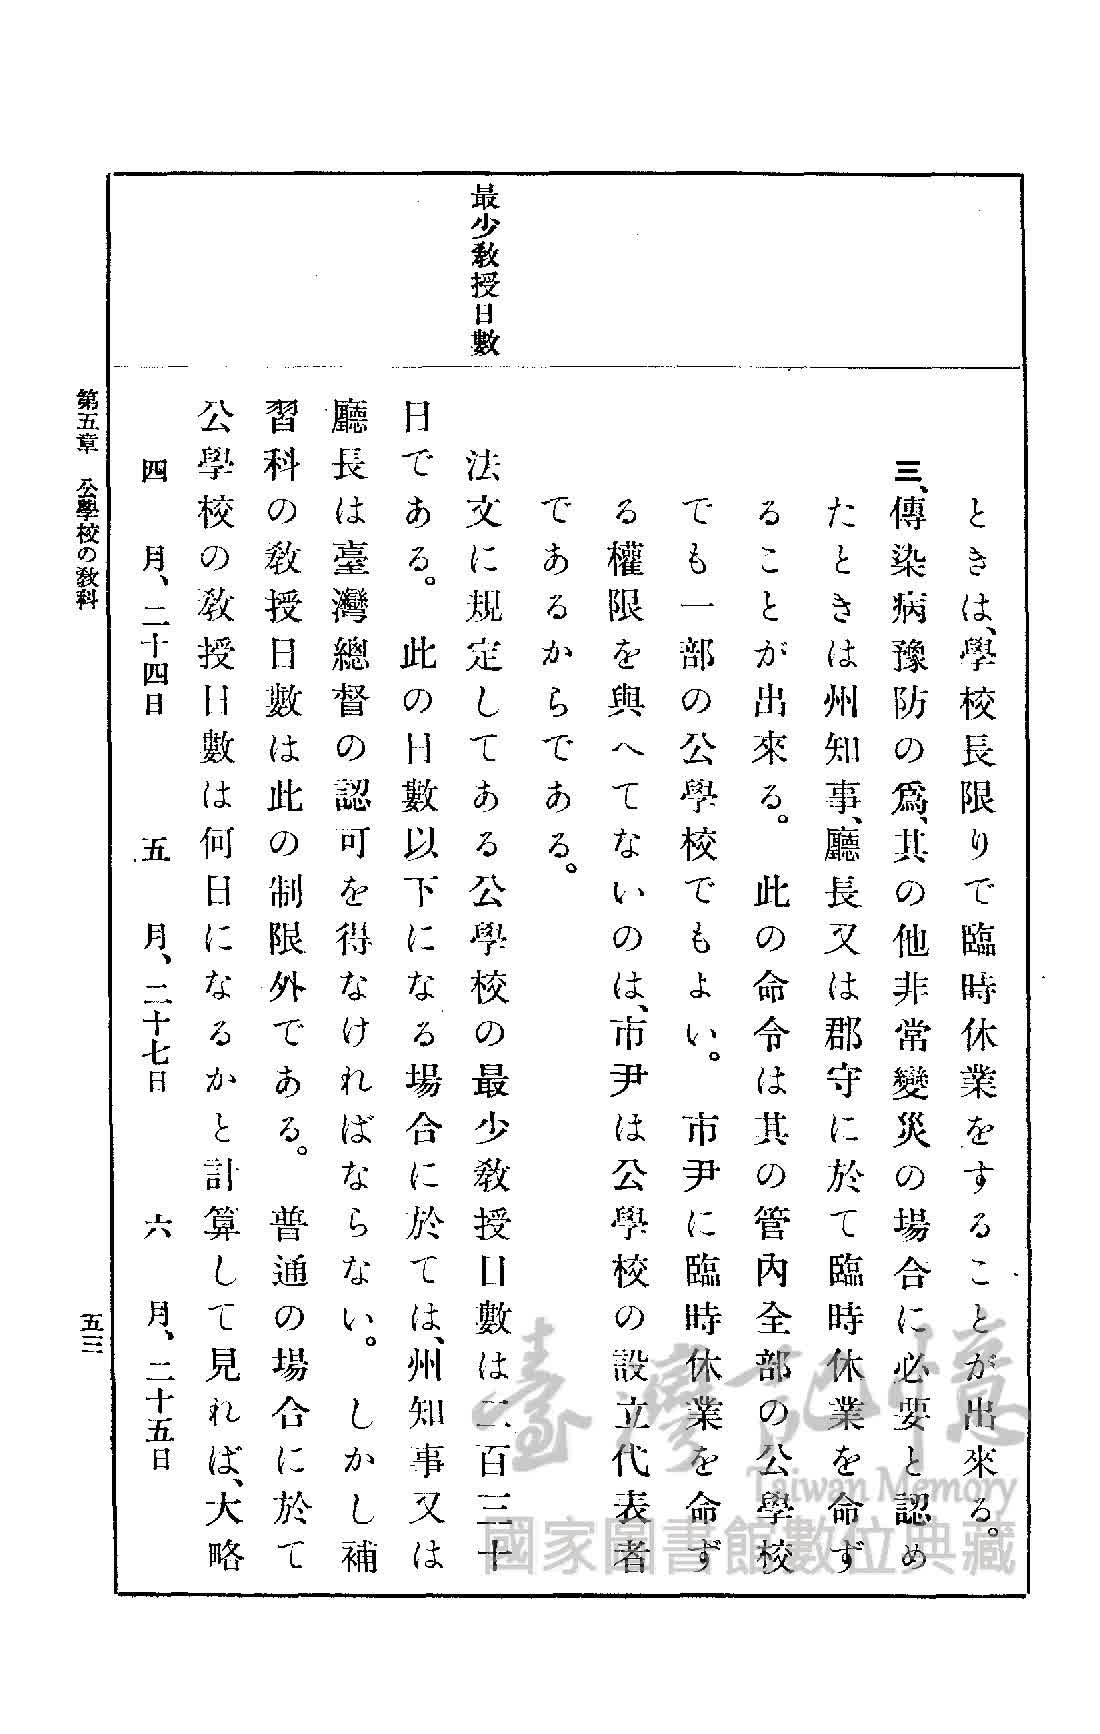 最少敎授日數
ときは、學校長限りで臨時休業をすることが出來る。
三、傳染病豫防の爲、其の他非常變災の場合に必要と認め
たときは州知事、廳長又は郡守に於て臨時休業を命ず
ることが出來る。此の命令は其の管內全部の公學校
でも一部の公學校でもよい。市尹に臨時休業を命ず
る權限を與へてないのは、市尹は公學校の設立代表者
であるからである。
法文に規定してある公學校の最少敎授日數は二百三十
日である。此の日數以下になる場合に於ては、州知事又は
廳長は臺灣總督の認可を得なければならない。しかし補
習科の敎授日數は此の制限外である。普通の場合に於て
公學校の敎授日數は何日になるかと計算して見れば、大略
四月、二十四日 五月、二十七日 六月、二十五日
第五章 公學校の敎科
五三
臺灣記憶
Taiwan Memory
國家圖書館數位典藏